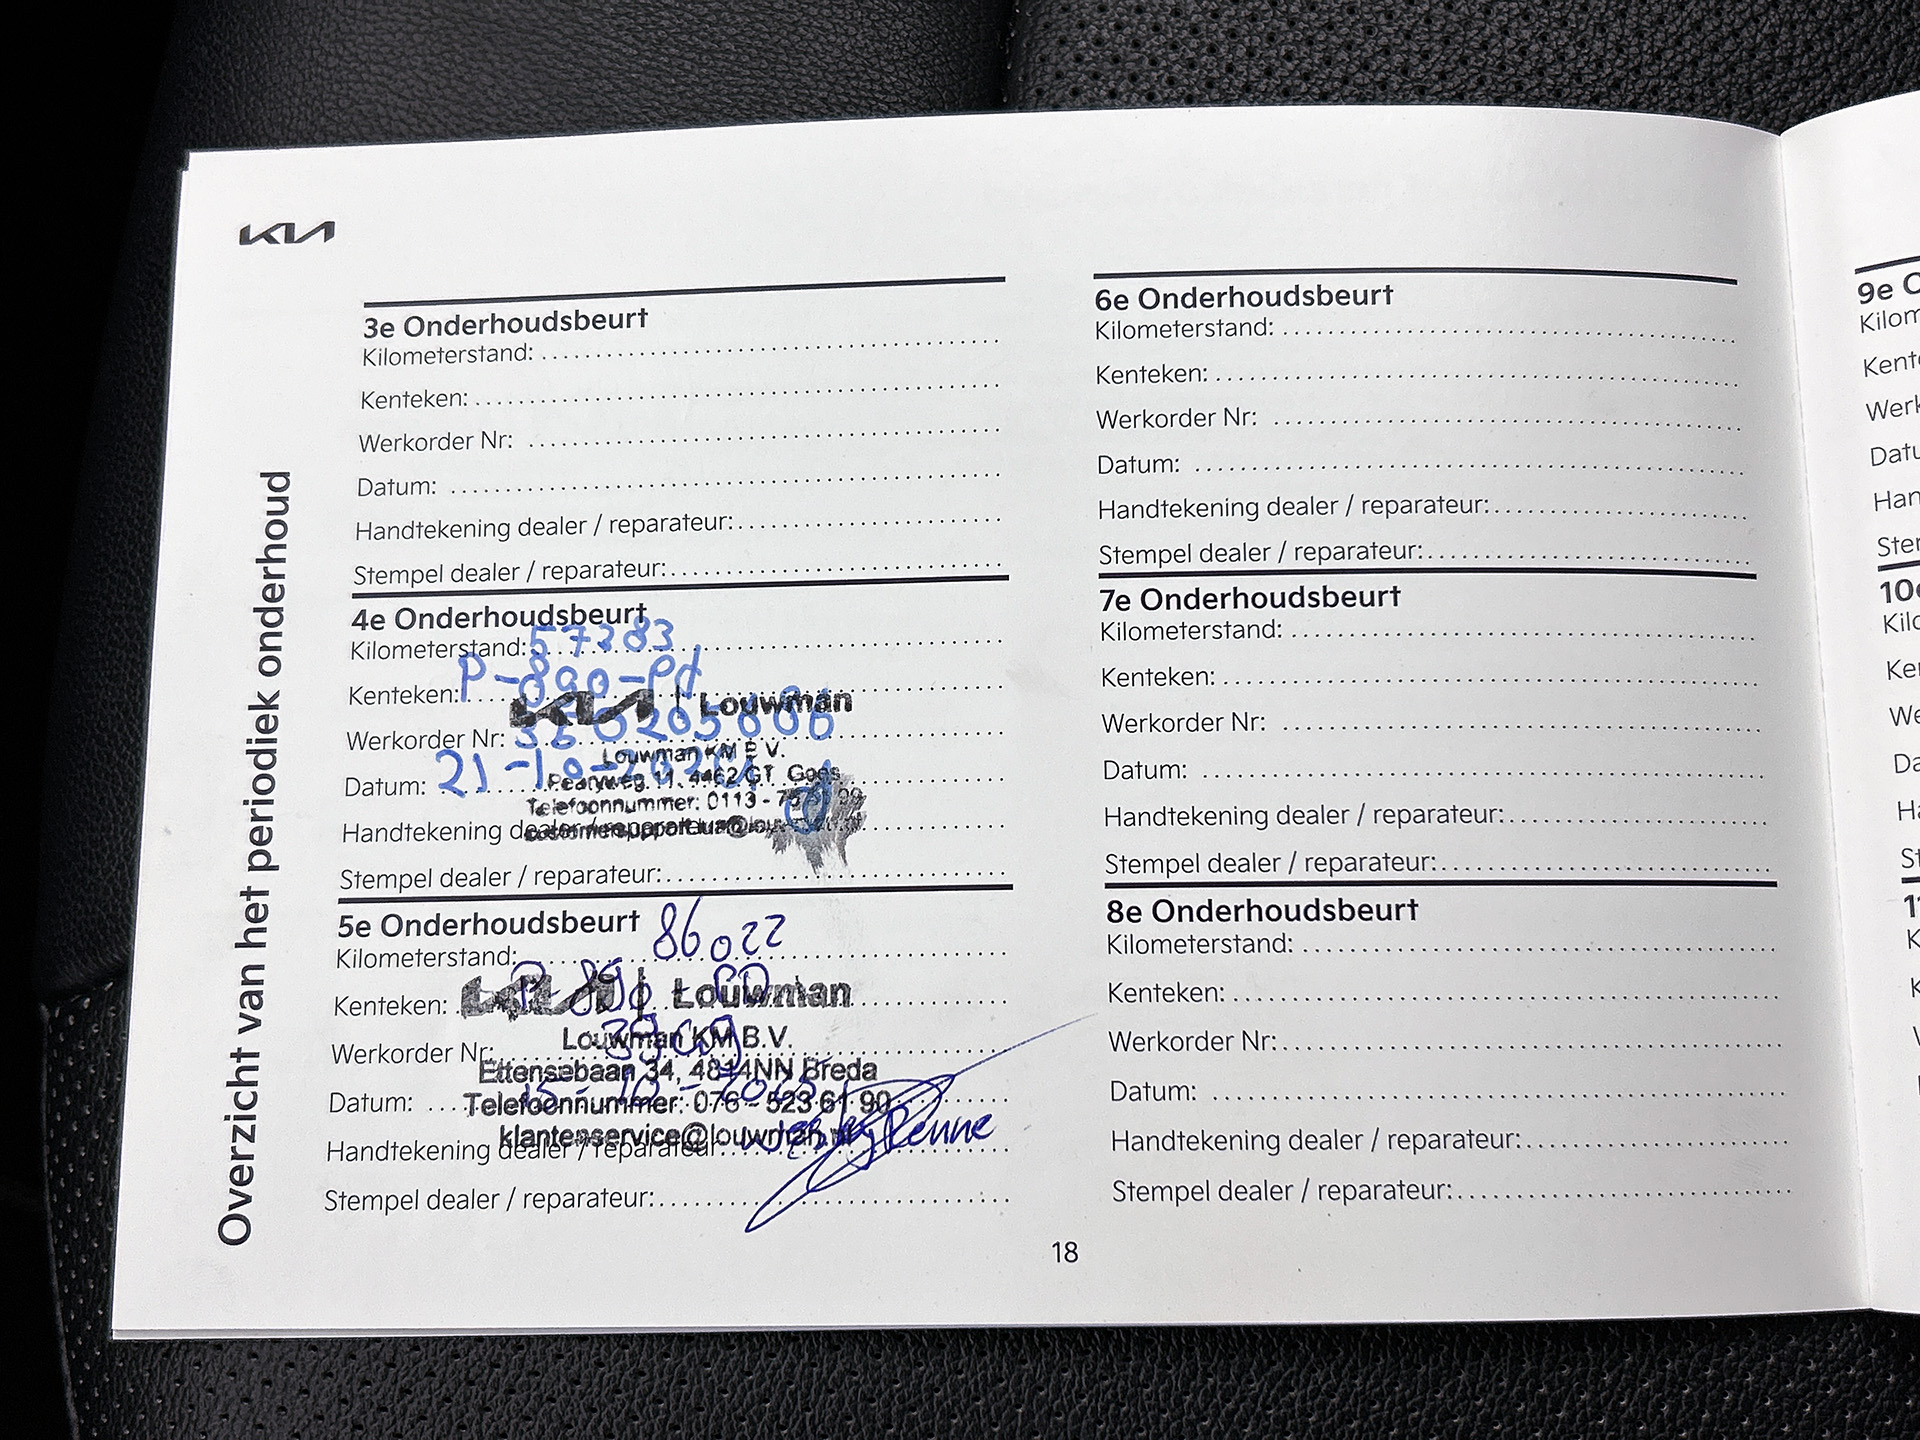 KIA
Overzicht van het periodiek onderhoud
3e Onderhoudsbeurt
Kilometerstand:
Kenteken:
Werkorder Nr:
Datum:
Handtekening dealer / reparateur:
Stempel dealer / reparateur:
4e Onderhoudsbeurt
Kilometerstand: 57383
Kenteken: P-890-Pd
KIA | Louwman
Werkorder Nr:
Louwman KM B.V.
Datum: 21-10-
11, 4462 GT Goes
Telefoonnummer: 0113 -
Handtekening dealer / reparateur:
Stempel dealer / reparateur:
5e Onderhoudsbeurt
Kilometerstand: 86022
Kenteken: P-890-PD
KIA | Louwman
Louwman KM B.V.
Werkorder Nr:
Ettensebaan 34, 4814NN Breda
Datum: 15-10-2025
Telefoonnummer: 076 - 523 61 90
klantenservice@louwman.nl
Handtekening dealer / reparateur:
Stempel dealer / reparateur:
6e Onderhoudsbeurt
Kilometerstand:
Kenteken:
Werkorder Nr:
Datum:
Handtekening dealer / reparateur:
Stempel dealer / reparateur:
7e Onderhoudsbeurt
Kilometerstand:
Kenteken:
Werkorder Nr:
Datum:
Handtekening dealer / reparateur:
Stempel dealer / reparateur:
8e Onderhoudsbeurt
Kilometerstand:
Kenteken:
Werkorder Nr:
Datum:
Handtekening dealer / reparateur:
Stempel dealer / reparateur:
18
9e O
Kilom
Kent
Werk
Datu
Han
Ster
10e
Kilo
Ke
We
Da
Ha
St